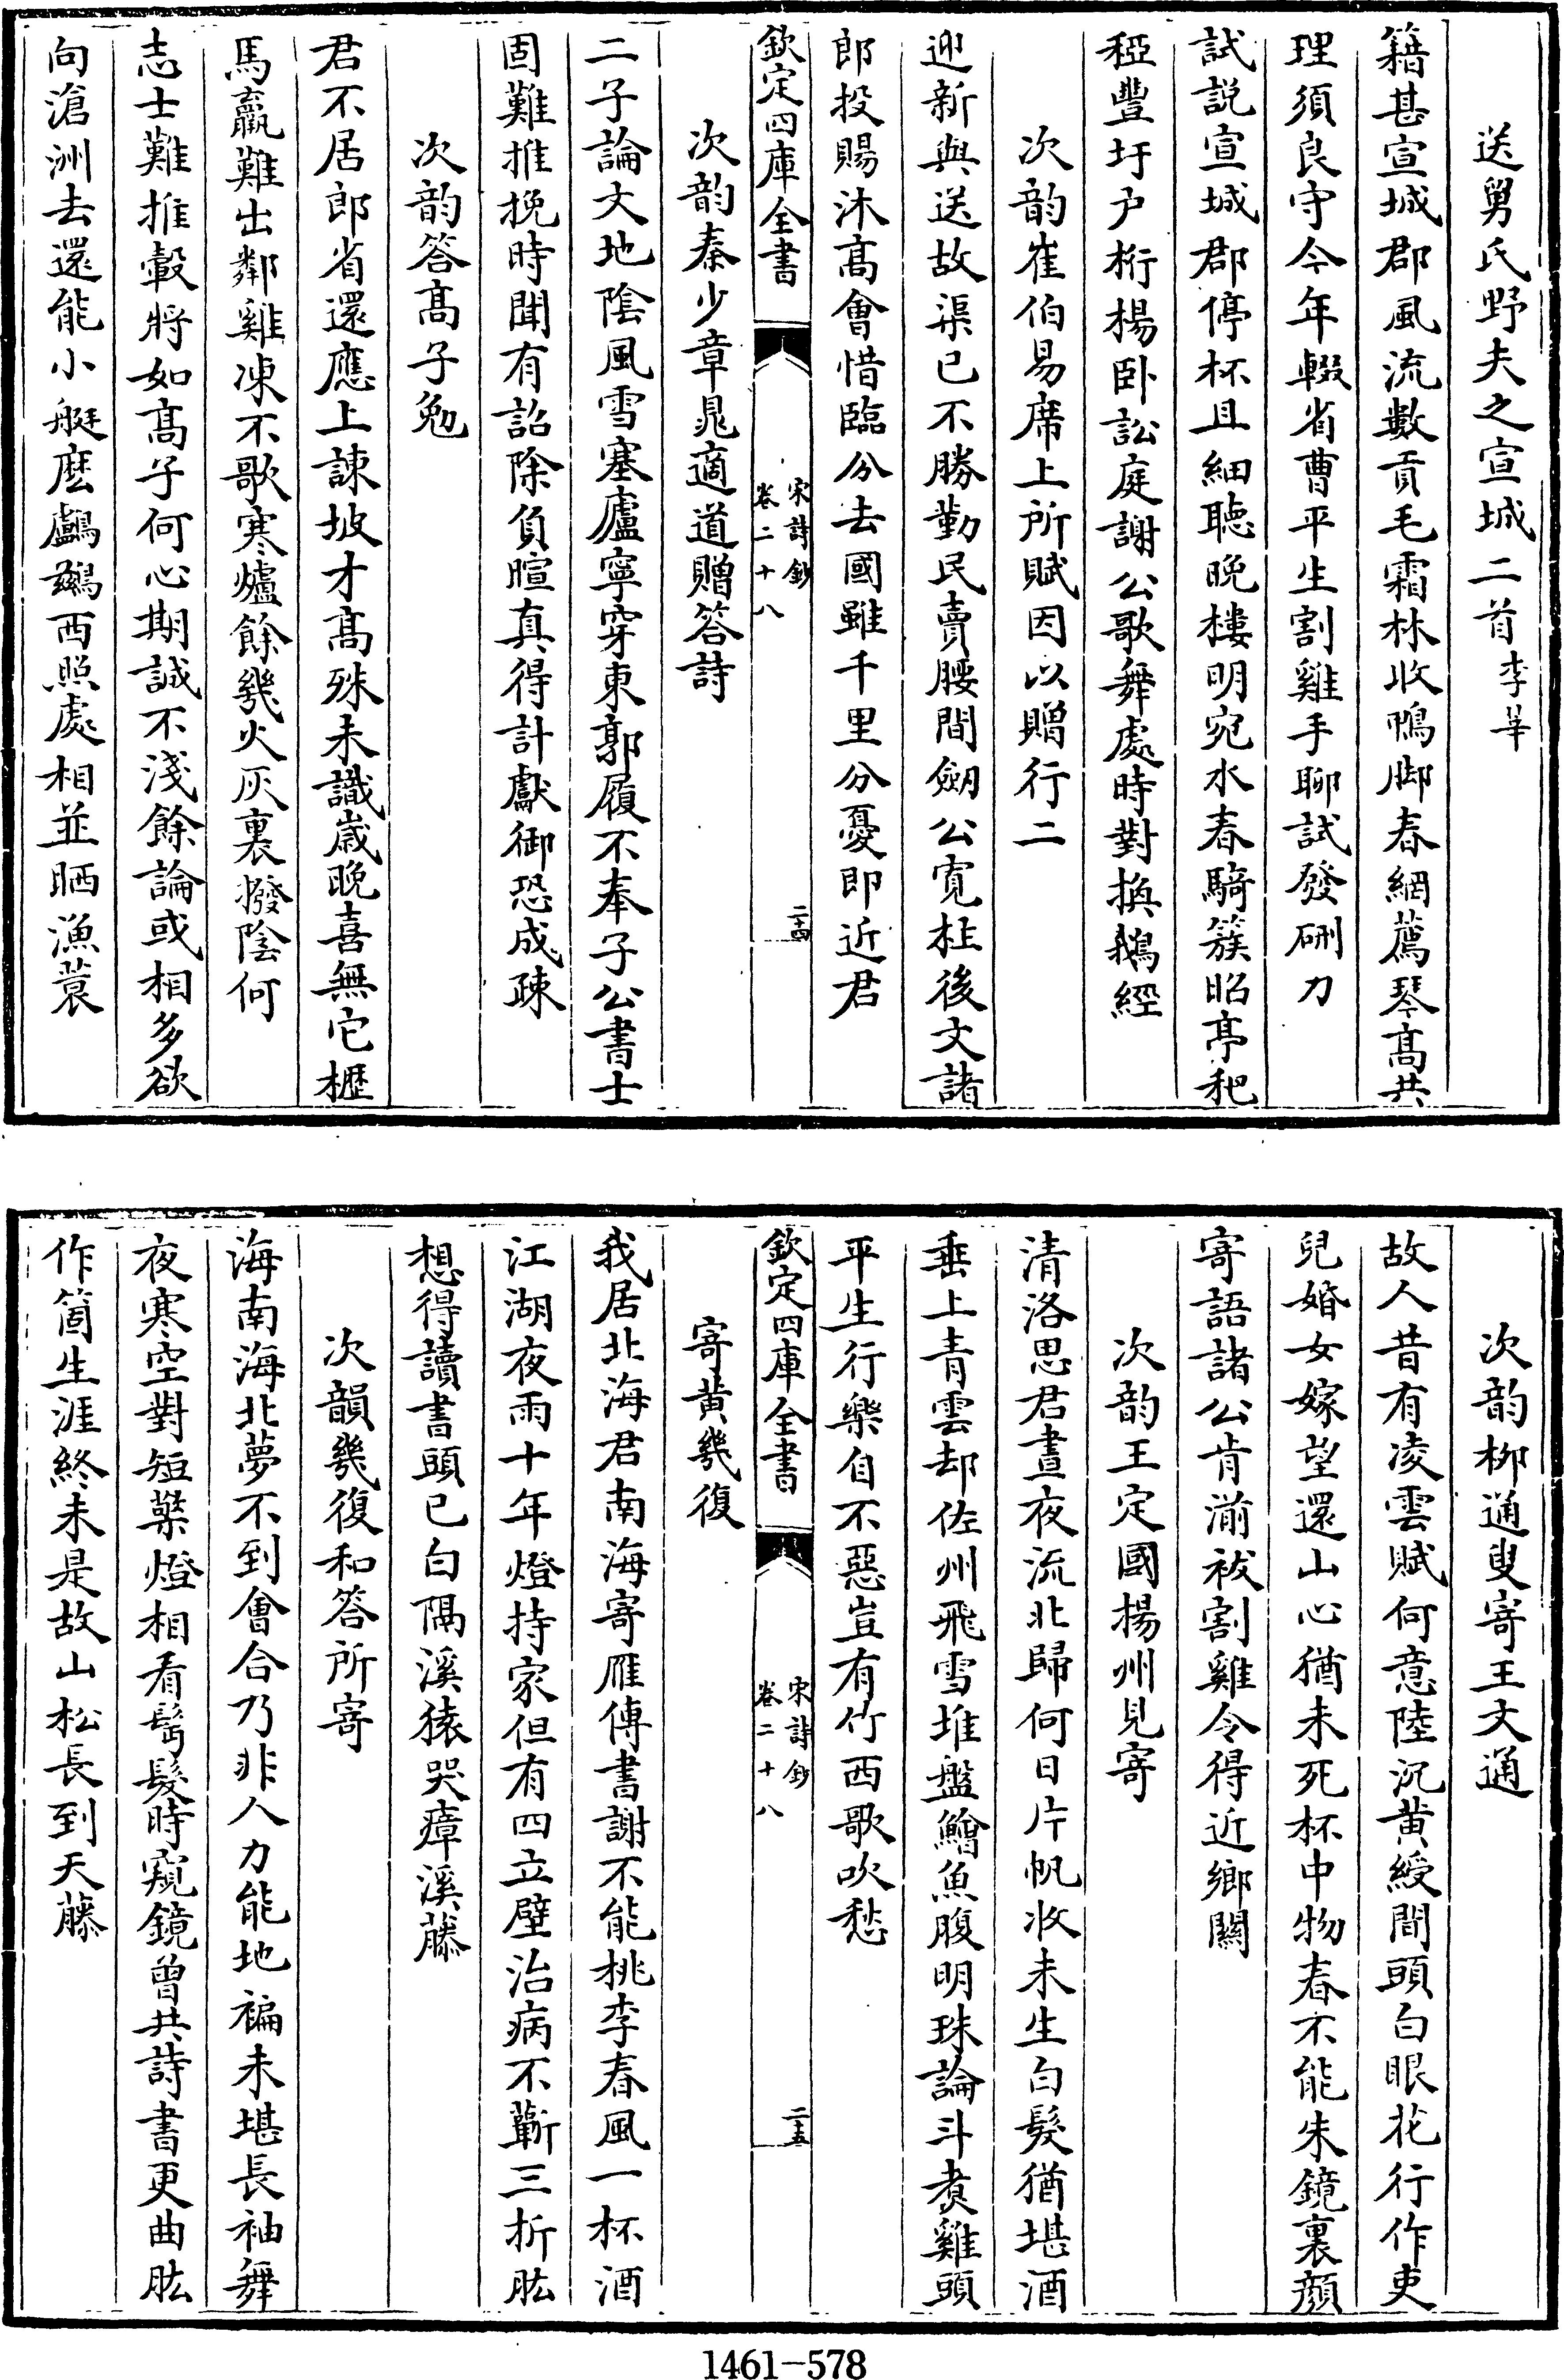 送舅氏野夫之宣城二首李莘
籍甚宣城郡風流數貢毛霜林收鴨脚春網薦琴髙共
理須良守今年輟省曹平生割雞手聊試發硎刀
試説宣城郡停杯且細聴晚樓明宛水春騎簇昭亭䆉
稏豐圩户桁楊卧訟庭謝公歌舞處時對換鵝經
次韵崔伯易席上所賦因以贈行二
迎新與送故渠已不勝勤民賣腰間劒公寛柱後文諸
郎投賜沐髙會惜臨分去國雖千里分憂即近君
欽定四庫全書
宋詩鈔
卷二十八
二十四
次韵秦少章晁適道贈答詩
二子論文地隂風雪塞廬寧穿東郭履不奉子公書士
固難推挽時聞有詔除負暄真得計獻御恐成疎
次韵答髙子勉
君不居郎省還應上諫坡才髙殊未識嵗晚喜無它櫪
馬羸難出鄰雞凍不歌寒爐餘幾火灰裏撥隂何
志士難推轂將如髙子何心期誠不淺餘論或相多欲
向滄洲去還能小艇麽鸕鷀西照處相並晒漁蓑
次韵柳通叟寄王文通
故人昔有凌雲賦何意陸沉黄綬間頭白眼花行作吏
兒婚女嫁望還山心猶未死杯中物春不能朱鏡裏顔
寄語諸公肯湔祓割雞令得近鄉關
次韵王定國揚州見寄
清洛思君晝夜流北歸何日片帆收未生白髮猶堪酒
垂上青雲却佐州飛雪堆盤鱠魚腹明珠論斗煑雞頭
平生行樂自不惡豈有竹西歌吹愁
欽定四庫全書
宋詩鈔
卷二十八
二十五
寄黄幾復
我居北海君南海寄雁傳書謝不能桃李春風一杯酒
江湖夜雨十年燈持家但有四立壁治病不蘄三折肱
想得讀書頭已白隔溪猿哭瘴溪藤
次韻幾復和答所寄
海南海北夢不到會合乃非人力能地褊未堪長袖舞
夜寒空對短檠燈相看鬢髮時窺鏡曾共詩書更曲肱
作箇生涯終未是故山松長到天藤
1461-578